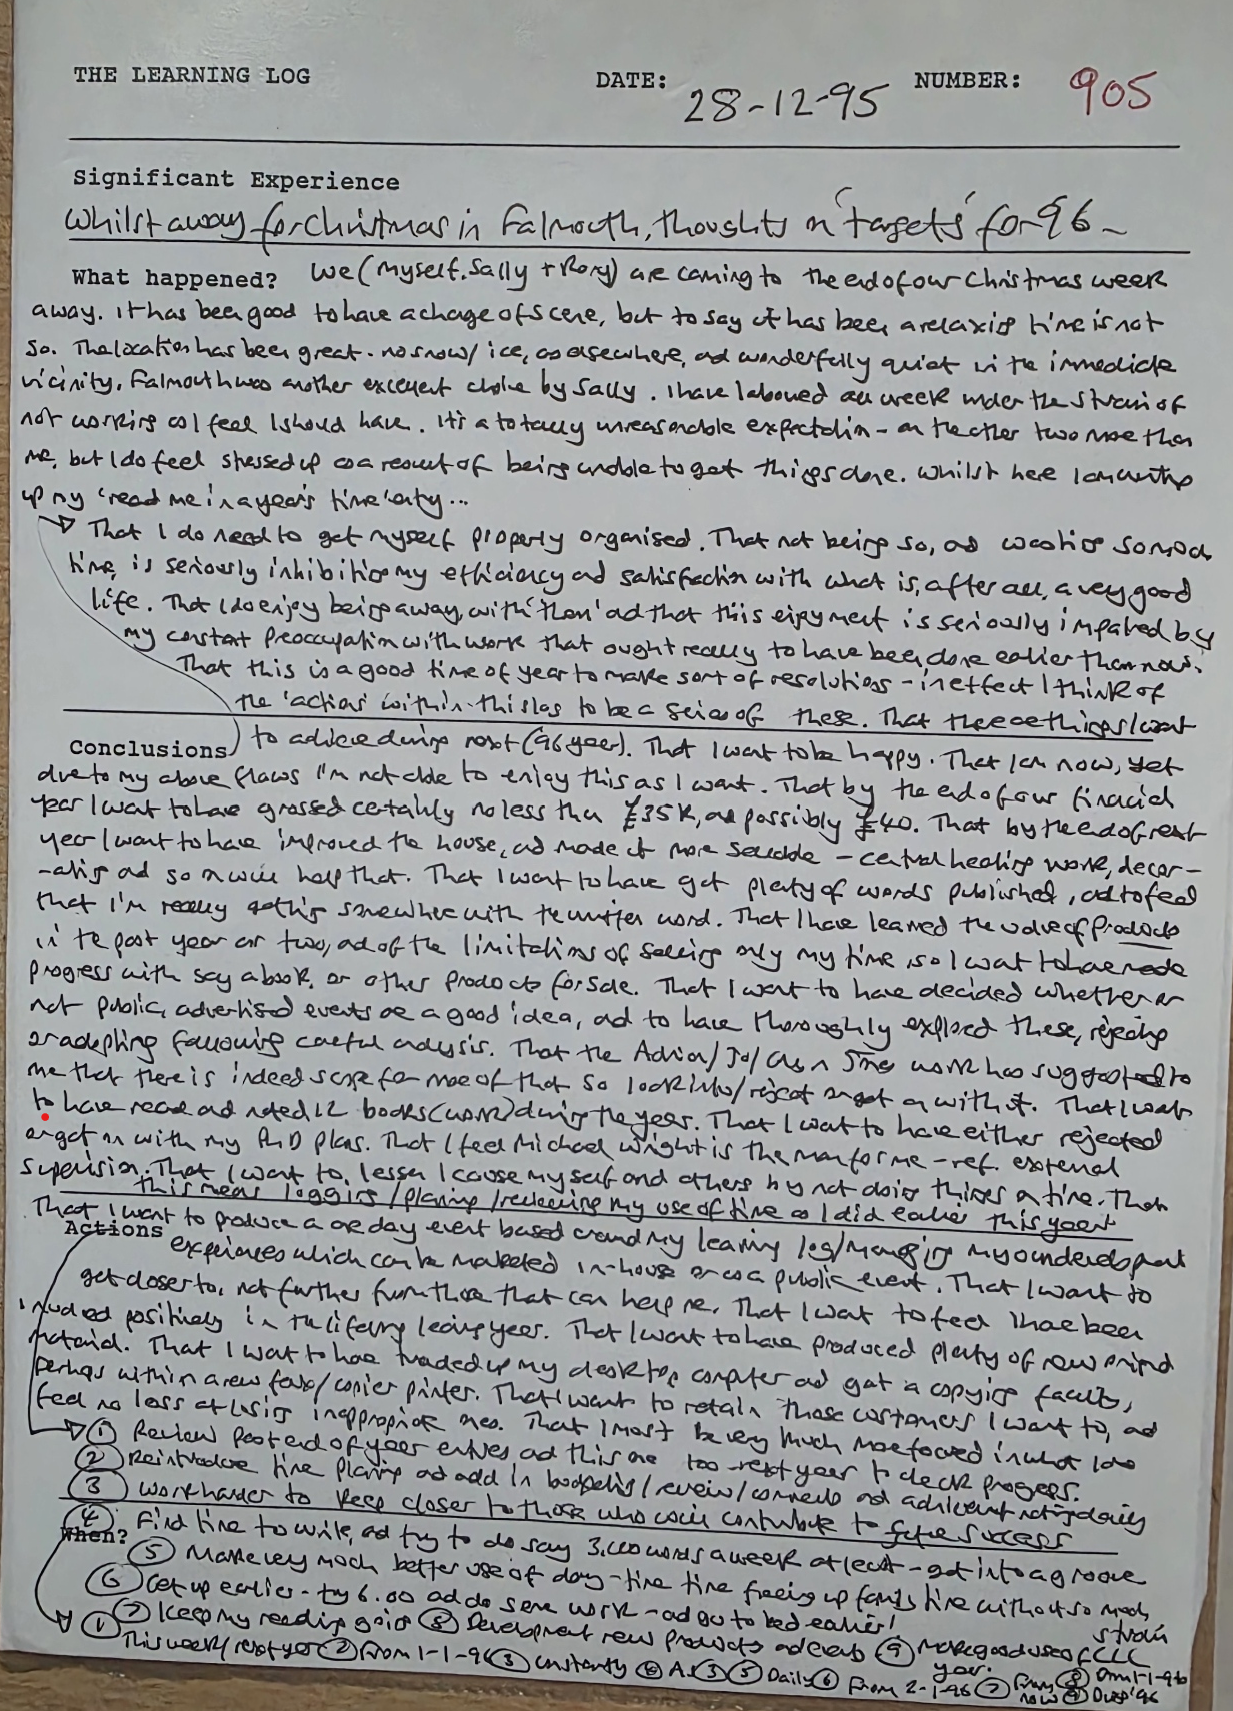 THE LEARNING LOG DATE: 28-12-95 NUMBER: 905
Significant Experience
Whilst away for Christmas in Falmouth, thoughts on 'targets' for 96 ~
What happened? We (myself. Sally + Rory) are coming to the end of our Christmas week
away. It has been good to have a change of scene, but to say it has been a relaxing time is not
so. The location has been great - no snow/ice, as elsewhere, and wonderfully quiet in the immediate
vicinity. Falmouth was another excellent choice by Sally. I have laboured all week under the strain of
not working as I feel I should have. It's a totally unreasonable expectation - on the other two more than
me, but I do feel stressed up as a result of being unable to get things done. Whilst here I am writing
up my 'read me in a year's time' entry...
That I do need to get myself properly organised. That not being so, and wasting so much
time, is seriously inhibiting my efficiency and satisfaction with what is, after all, a very good
life. That I do enjoy being away, with 'them' and that this enjoyment is seriously impaired by
my constant preoccupation with work that ought really to have been done earlier than now.
That this is a good time of year to make sort of resolutions - in effect I think of
the 'actions' within this log to be a series of these. That there are things I want
Conclusions to achieve during next (96 year). That I want to be happy. That I am now, yet
due to my above flaws I'm not able to enjoy this as I want. That by the end of our financial
year I want to have grossed certainly no less than £35K, and possibly £40. That by the end of next
year I want to have improved the house, and made it more saleable - central heating work, decor-
-ating and so on will help that. That I want to have got plenty of words published, and to feel
that I'm really getting somewhere with the written word. That I have learned the value of products
in the past year or two, and of the limitations of selling only my time, so I want to have made
progress with say a book, or other products for sale. That I want to have decided whether or
not public, advertised events are a good idea, and to have thoroughly explored these, rejecting
or adopting following careful analysis. That the Adrian/Jo/ work has suggested to
me that there is indeed scope for more of that so look into/reject or get on with it. That I want
to have read and noted 12 books (work) during the year. That I want to have either rejected
or got on with my PhD plans. That I feel Michael Wright is the man for me - ref. external
supervision. That I want to lessen I cause myself and others by not doing things on time. That
this means logging/planning/reviewing my use of time as I did earlier this year
That I want to produce a one day event based around my learning log/managing my own development
Actions experiences which can be marketed in-house or as a public event. That I want to
get closer to, not further from those that can help me. That I want to feel I have been
involved positively in the lifelong learning year. That I want to have produced plenty of new original
material. That I want to have traded up my desk top computer and got a copying facility,
perhaps within a new fax/copier printer. That I want to retain those customers I want to, and
feel no loss at losing inappropriate ones. That I must be very much more focused in what I do
① Review past end of year entries and this one too next year to check progress.
② Reintroduce time planning and add in /review/comments and achievement noting daily
③ Work harder to keep closer to those who will contribute to future success
④ Find time to write, and try to do say 3,000 words a week at least - get into a groove
When?
⑤ Make very much better use of day-time time freeing up family time without so much strain
⑥ Get up earlier - try 6.00 and do some work - and go to bed earlier!
⑦ Keep my reading going ⑧ Development new products and events ⑨ Make good use of CLC year.
① This week/next year ② From 1-1-96 ③ Constantly ④ As ③ ⑤ Daily ⑥ From 2-1-96 ⑦ From now ⑧ From 1-1-96 ⑨ During '96